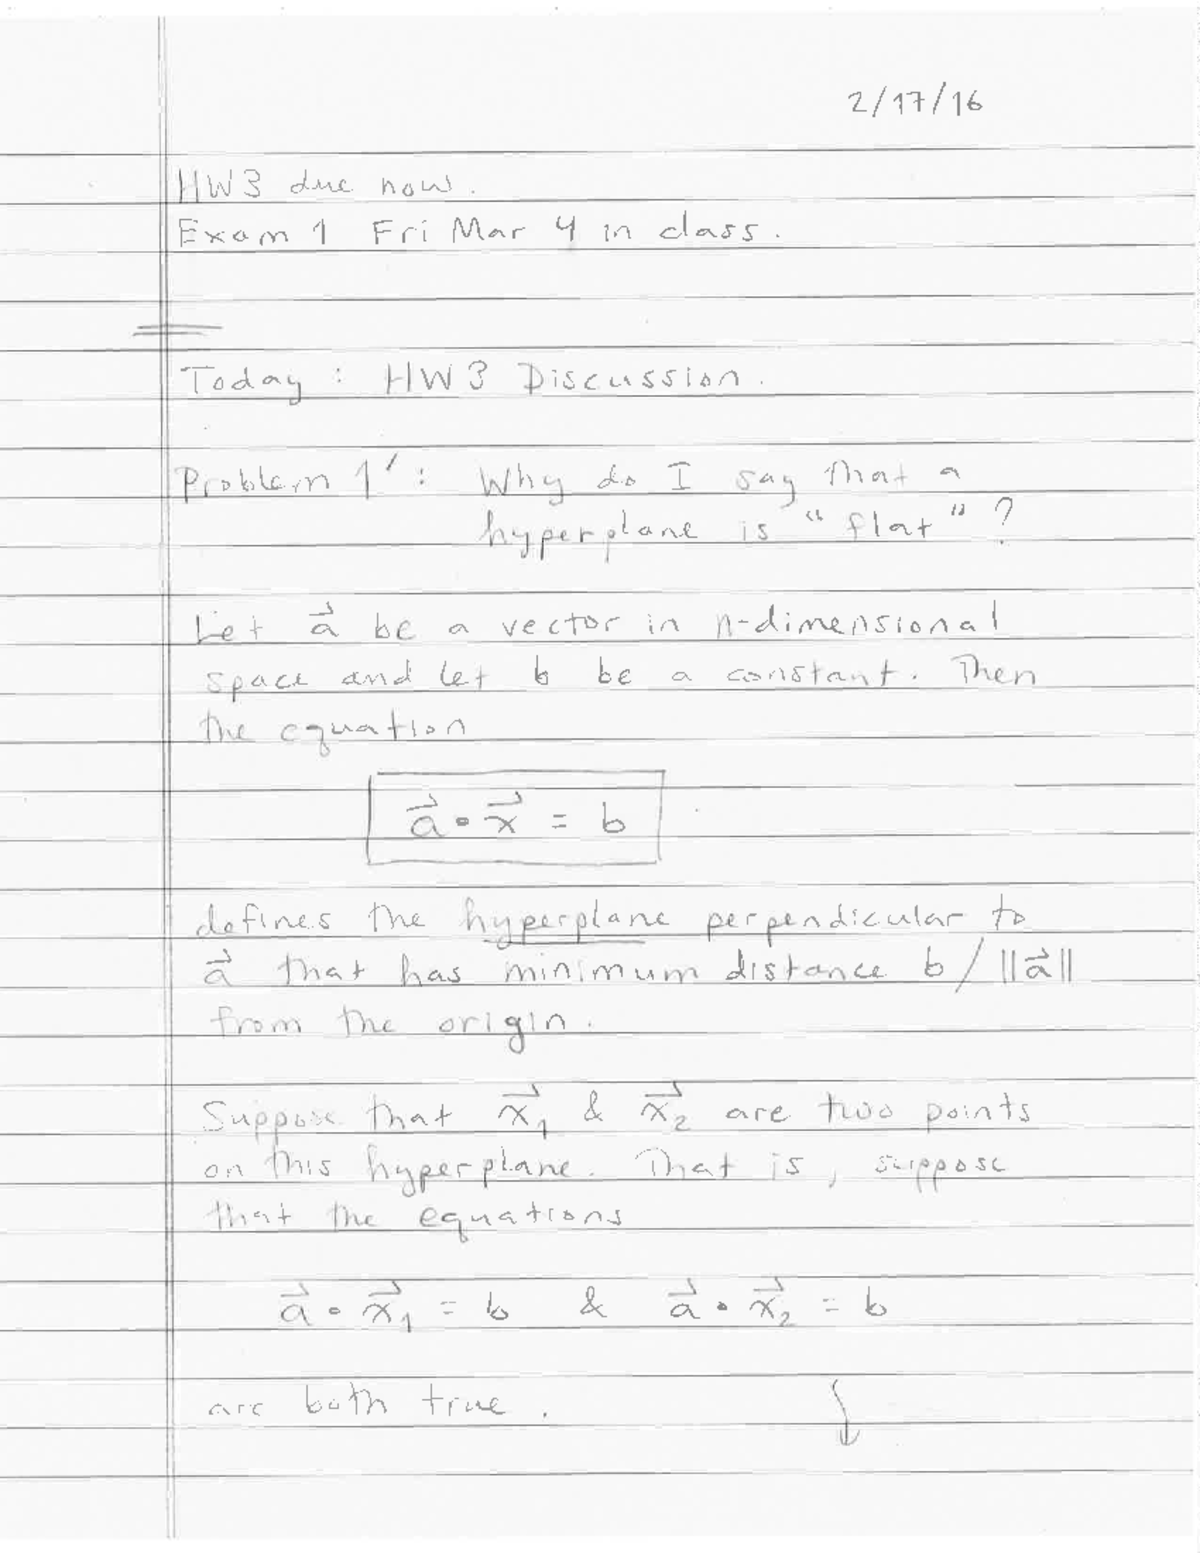 2/17/16
HW3 due now.
Exam 1 Fri Mar 4 in class.
Today : HW3 Discussion.
Problem 1' : Why do I say that a
hyperplane is "flat"?
Let a⃗ be a vector in n-dimensional
space and let b be a constant. Then
the equation
a⃗ • x⃗ = b
defines the hyperplane perpendicular to
a⃗ that has minimum distance b/||a⃗||
from the origin.
Suppose that x⃗₁ & x⃗₂ are two points
on this hyperplane. That is, suppose
that the equations
a⃗ • x⃗₁ = b & a⃗ • x⃗₂ = b
are both true.